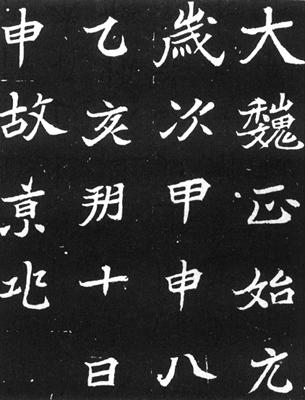 大魏正始元
歲次甲申八
乙亥朔十日
申故亰兆